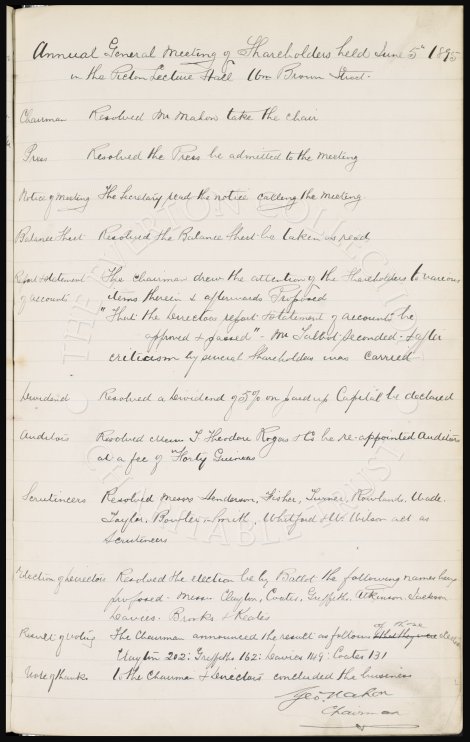 Annual General Meeting of Shareholders held June 5th 1895
in the Picton Lecture Hall Wm Brown Street.
Chairman Resolved Mr Mahon take the chair
Press Resolved the Press be admitted to the meeting
Notice of Meeting The Secretary read the notice calling the meeting
Balance Sheet Resolved the Balance Sheet be taken as read
Report & statement The Chairman drew the attention of the Shareholders to various
of accounts items therein & afterwards Proposed
"That the Directors report & statement of accounts be
approved & passed" - Mr Talbot seconded - & after
criticism by several Shareholders was carried
Dividend Resolved a Dividend of 5% on paid up Capital be declared
Auditors Resolved Messrs T Theodore Rogers & Co be re-appointed Auditors
at a fee of Forty Guineas
Scrutineers Resolved Messrs Henderson, Fisher, Turner, Rowlands, Wade,
Taylor, Bowfler Smith, Whitford & W. Wilson act as
Scrutineers
Election of Directors Resolved the election be by Ballot the following names being
proposed - Messrs Clayton, Coates, Griffiths, Atkinson Jackson
Davies - Brooks & Keates
Result of voting The Chairman announced the result as follows of those elected
Clayton 202: Griffiths 162: Davies 149: Coates 131
Vote of thanks to the Chairman & Directors concluded the business
Geo. Mahon
Chairman
THE EVERTON COLLECTION
CHARITABLE TRUST